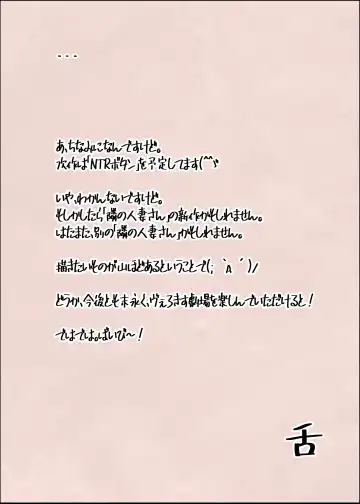 ...
あ、ちなみになんですけど。
次作は「NTRボタン」を予定してます(^^ゞ
いや、わかんないですけど。
もしかしたら、「隣の人妻さん」の新作かもしれません。
はたまた、別の「隣の人妻さん」かもしれません。
描きたいものが山ほどあるということで(; ｀∧´)/
どうか、今後とも末永く、ヴぇろきす劇場を楽しんでいただけると！
ではでは。ばいぴ〜！
舌